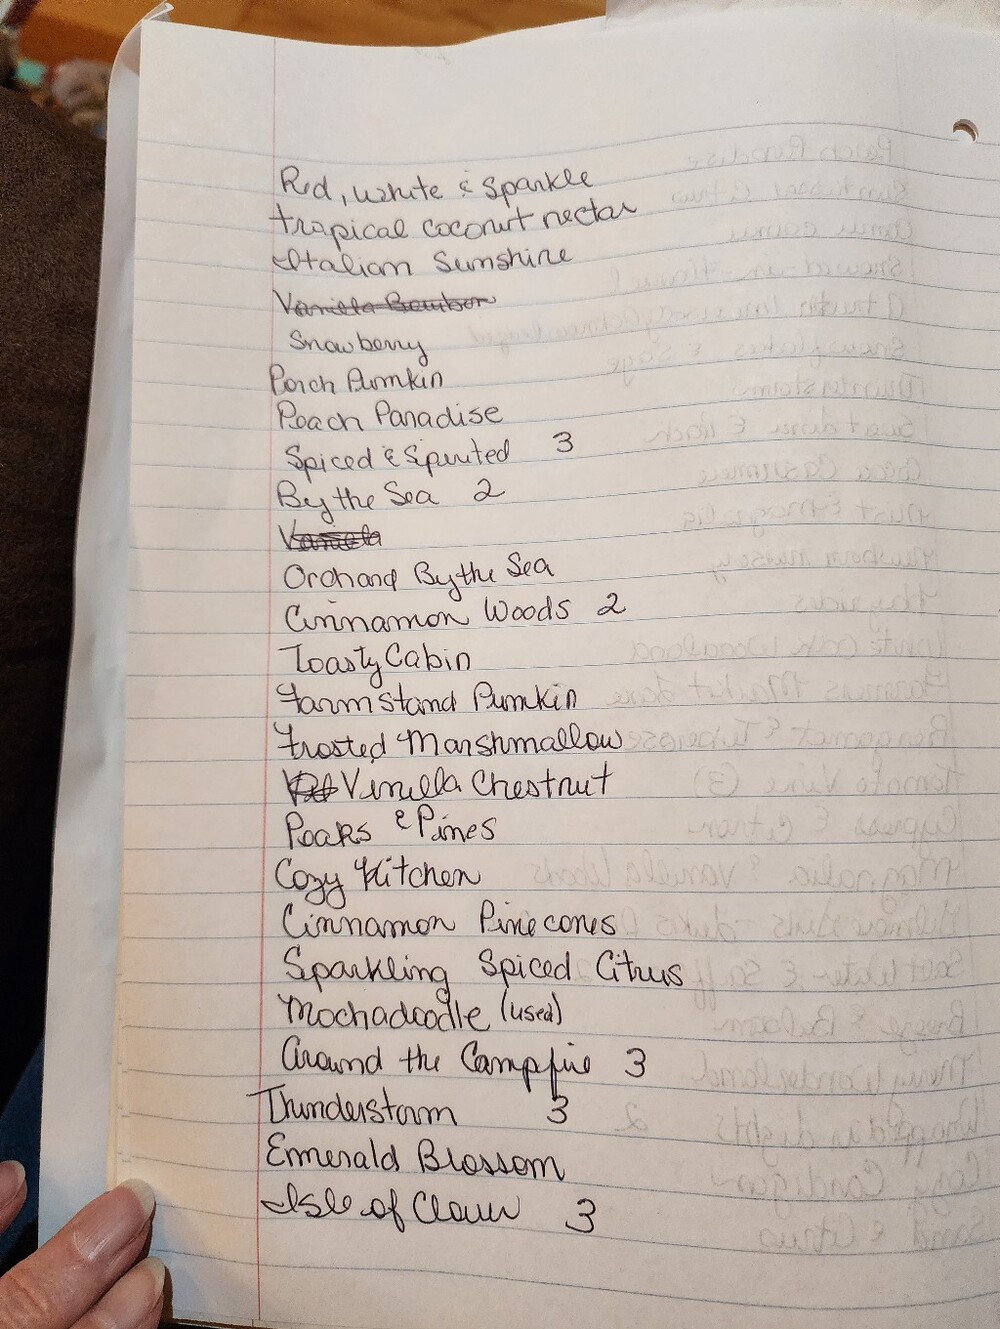 Red, White & Sparkle
tropical coconut nectar
Italian Sunshine
Vanilla Bourbon
Snowberry
Porch Pumkin
Peach Paradise
Spiced & Spirited 3
By the Sea 2
Vanilla
Orchard By the Sea
Cinnamon Woods 2
Toasty Cabin
Farmstand Pumkin
Frosted Marshmallow
Vinella Chestnut
Peaks & Pines
Cozy Kitchen
Cinnamon Pinecones
Sparkling Spiced Citrus
Mochadoodle (used)
Around the Campfire 3
Thunderstorm 3
Emerald Blossom
Isle of 3